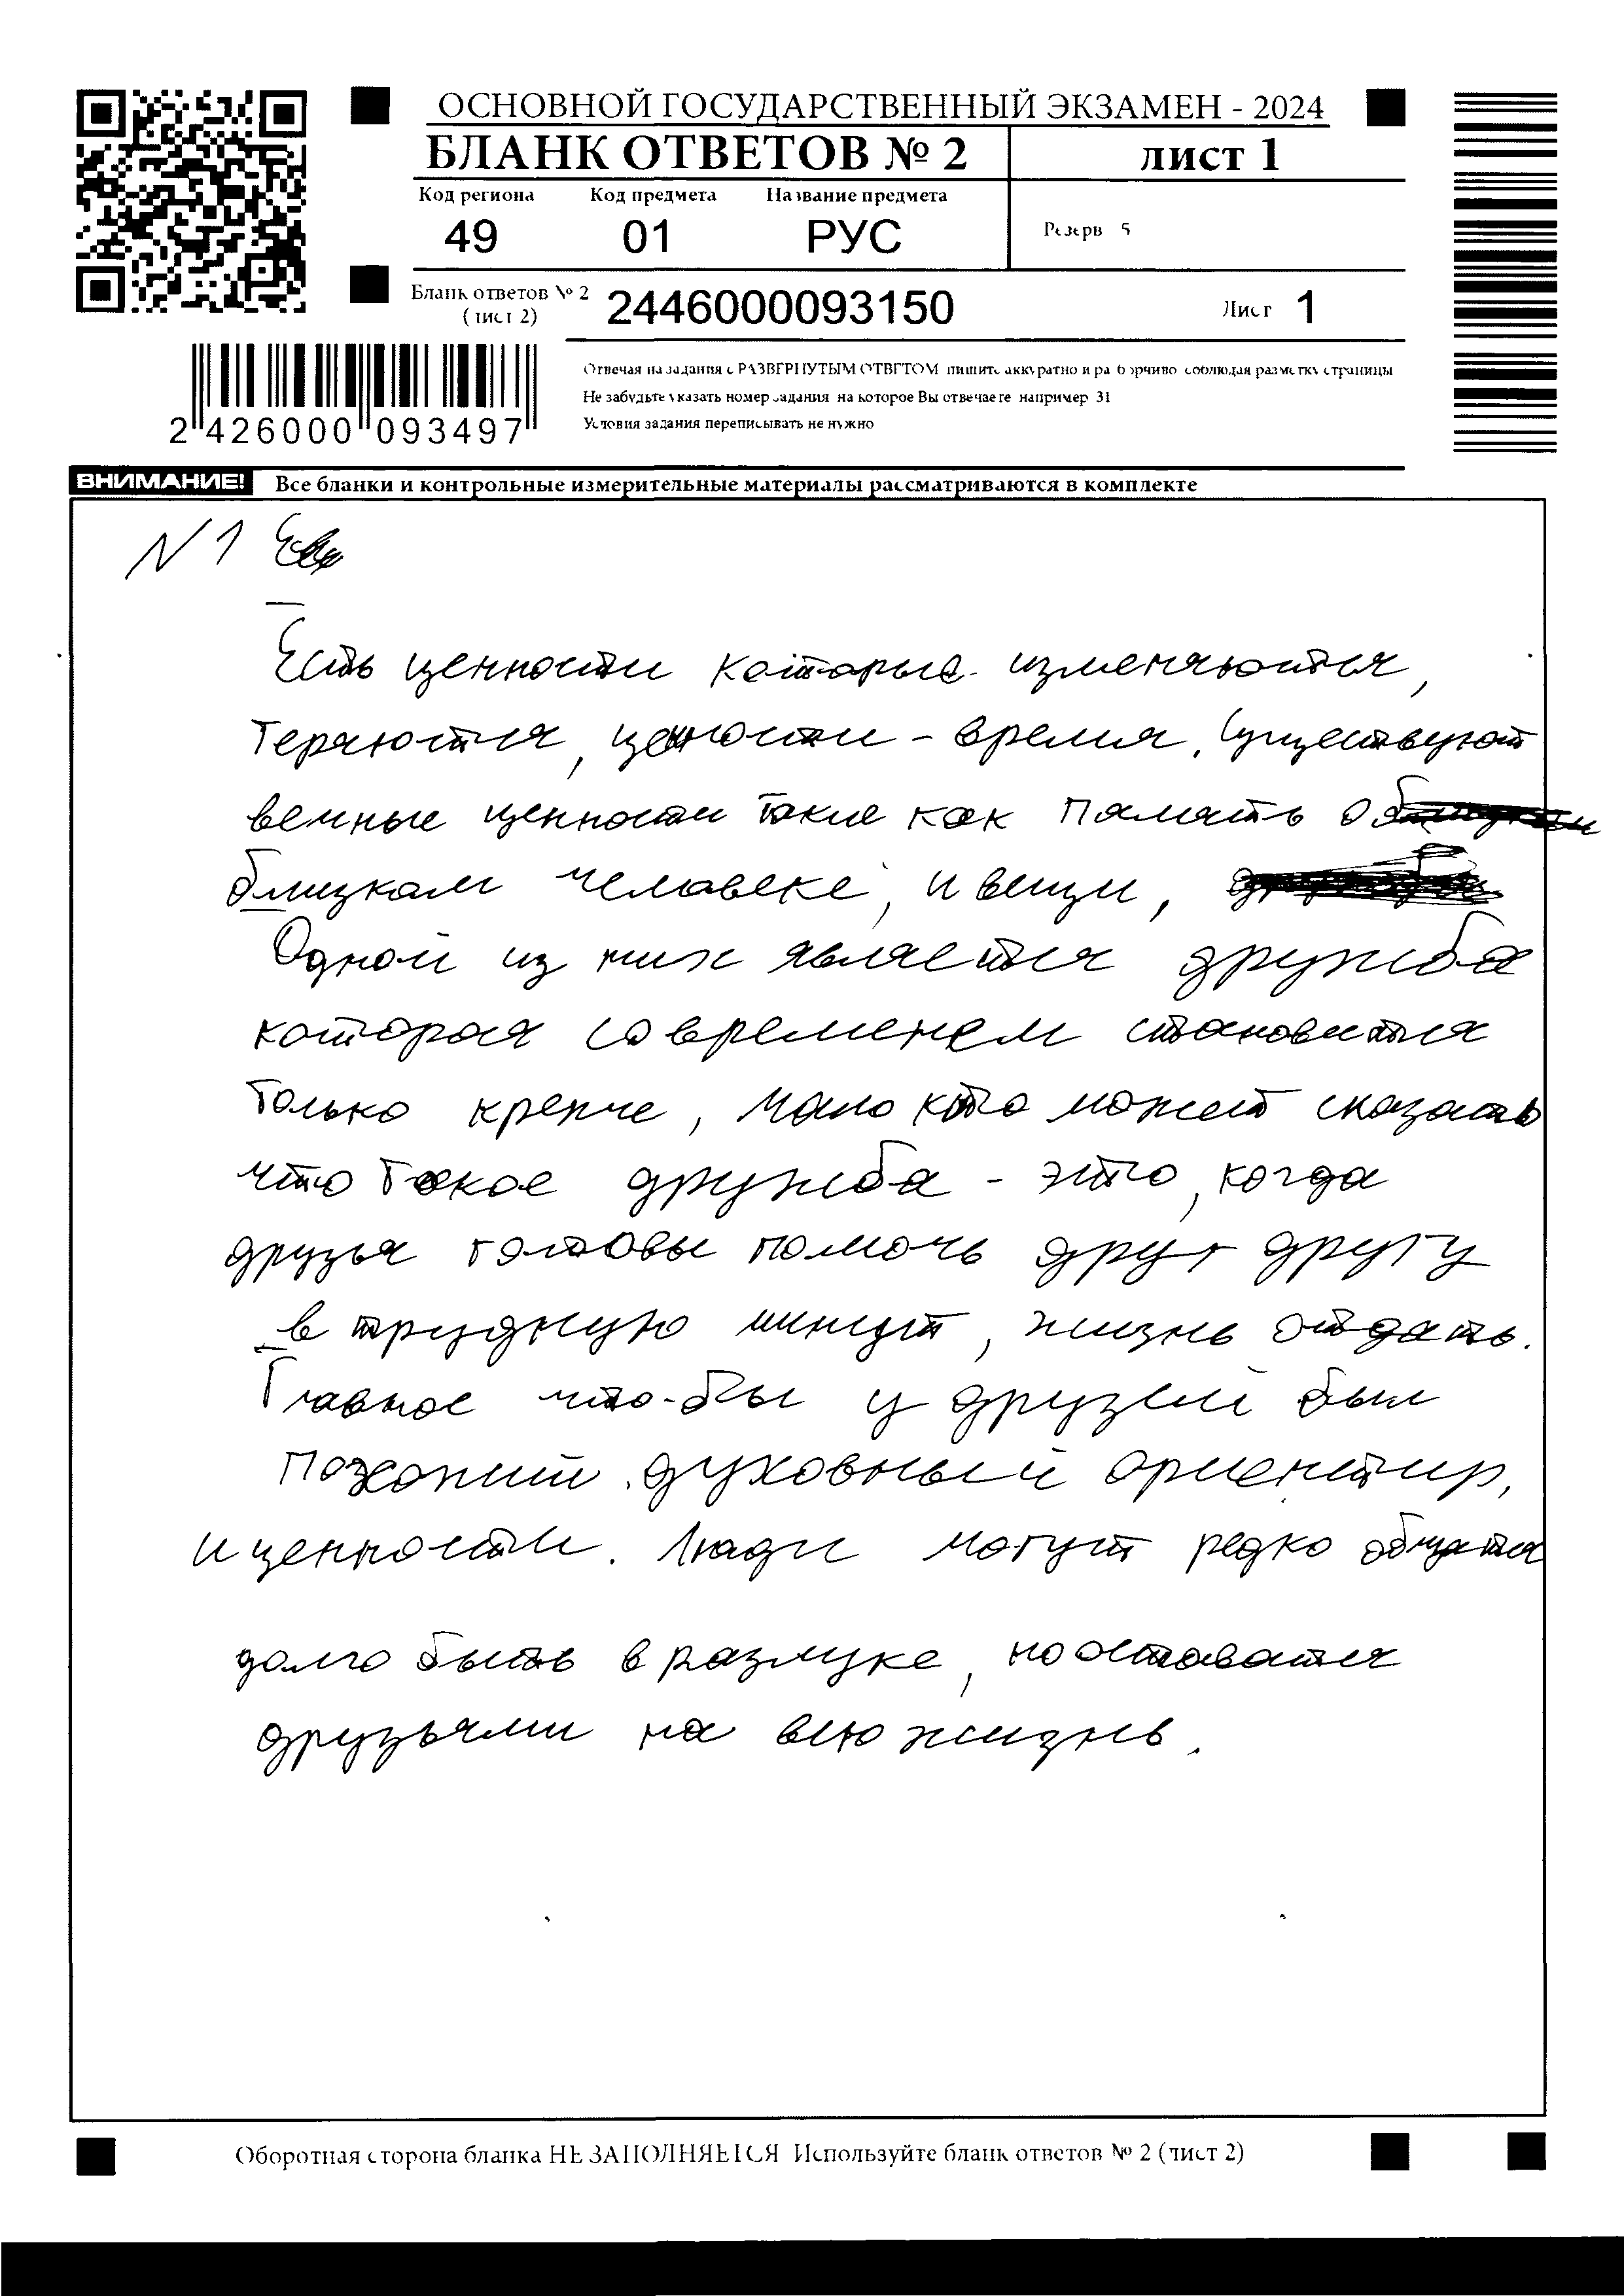 ОСНОВНОЙ ГОСУДАРСТВЕННЫЙ ЭКЗАМЕН - 2024
БЛАНК ОТВЕТОВ № 2 лист 1
Код региона Код предмета Название предмета
49 01 РУС Резерв 5
Бланк ответов № 2 (лист 2) 2446000093150 Лист 1
Отвечая на задания с РАЗВЕРНУТЫМ ОТВЕТОМ пишите аккуратно и разборчиво соблюдая разметку страницы
Не забудьте указать номер задания на которое Вы отвечаете например 31
Условия задания переписывать не нужно
2 426000 093497
ВНИМАНИЕ! Все бланки и контрольные измерительные материалы рассматриваются в комплекте
N 1
Есть ценности которые изменяются,
теряются, ценности - время. Существуют
вечные ценности такие как память о
близкам человеке, и вещи,
Одной из них является дружба
которая современем становится
только крепче, мало кто может сказать
что такое дружба - это, когда
друзья готовы помочь друг другу
в трудную минут, жизнь отдать.
Главное что-бы у друзей был
похопий духовный ориентир,
и ценности. Люди могут редко общатся
долго быть в разлуке, но оставатся
друзьями на всю жизнь.
Оборотная сторона бланка НЕ ЗАПОЛНЯЕТСЯ Используйте бланк ответов № 2 (лист 2)